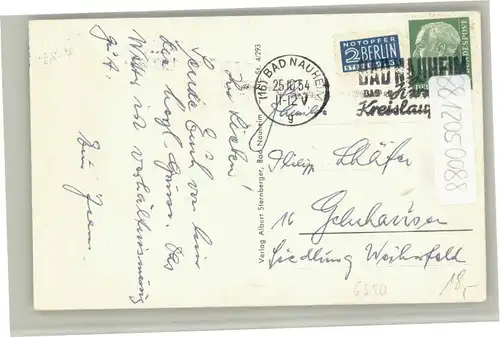 Ihr Lieben!
Sende Euch von hier
die herzl. Grüsse. Das
Wetter ist verhältnismässig
gut.
Verlag Albert Sternberger, Bad Nauheim
Nr. 4/293
(16) BAD NAUHEIM
25.10.54
11-12 V
g
NOTOPFER
2 BERLIN
STEUERMARKE
BAD NAUHEIM
DAS
Kreislauf
DEUTSCHE BUNDESPOST
Familie
Philipp Schäfer
16 Gelnhausen
Siedlung Weihersfeld
6350
18,-
881205 0088